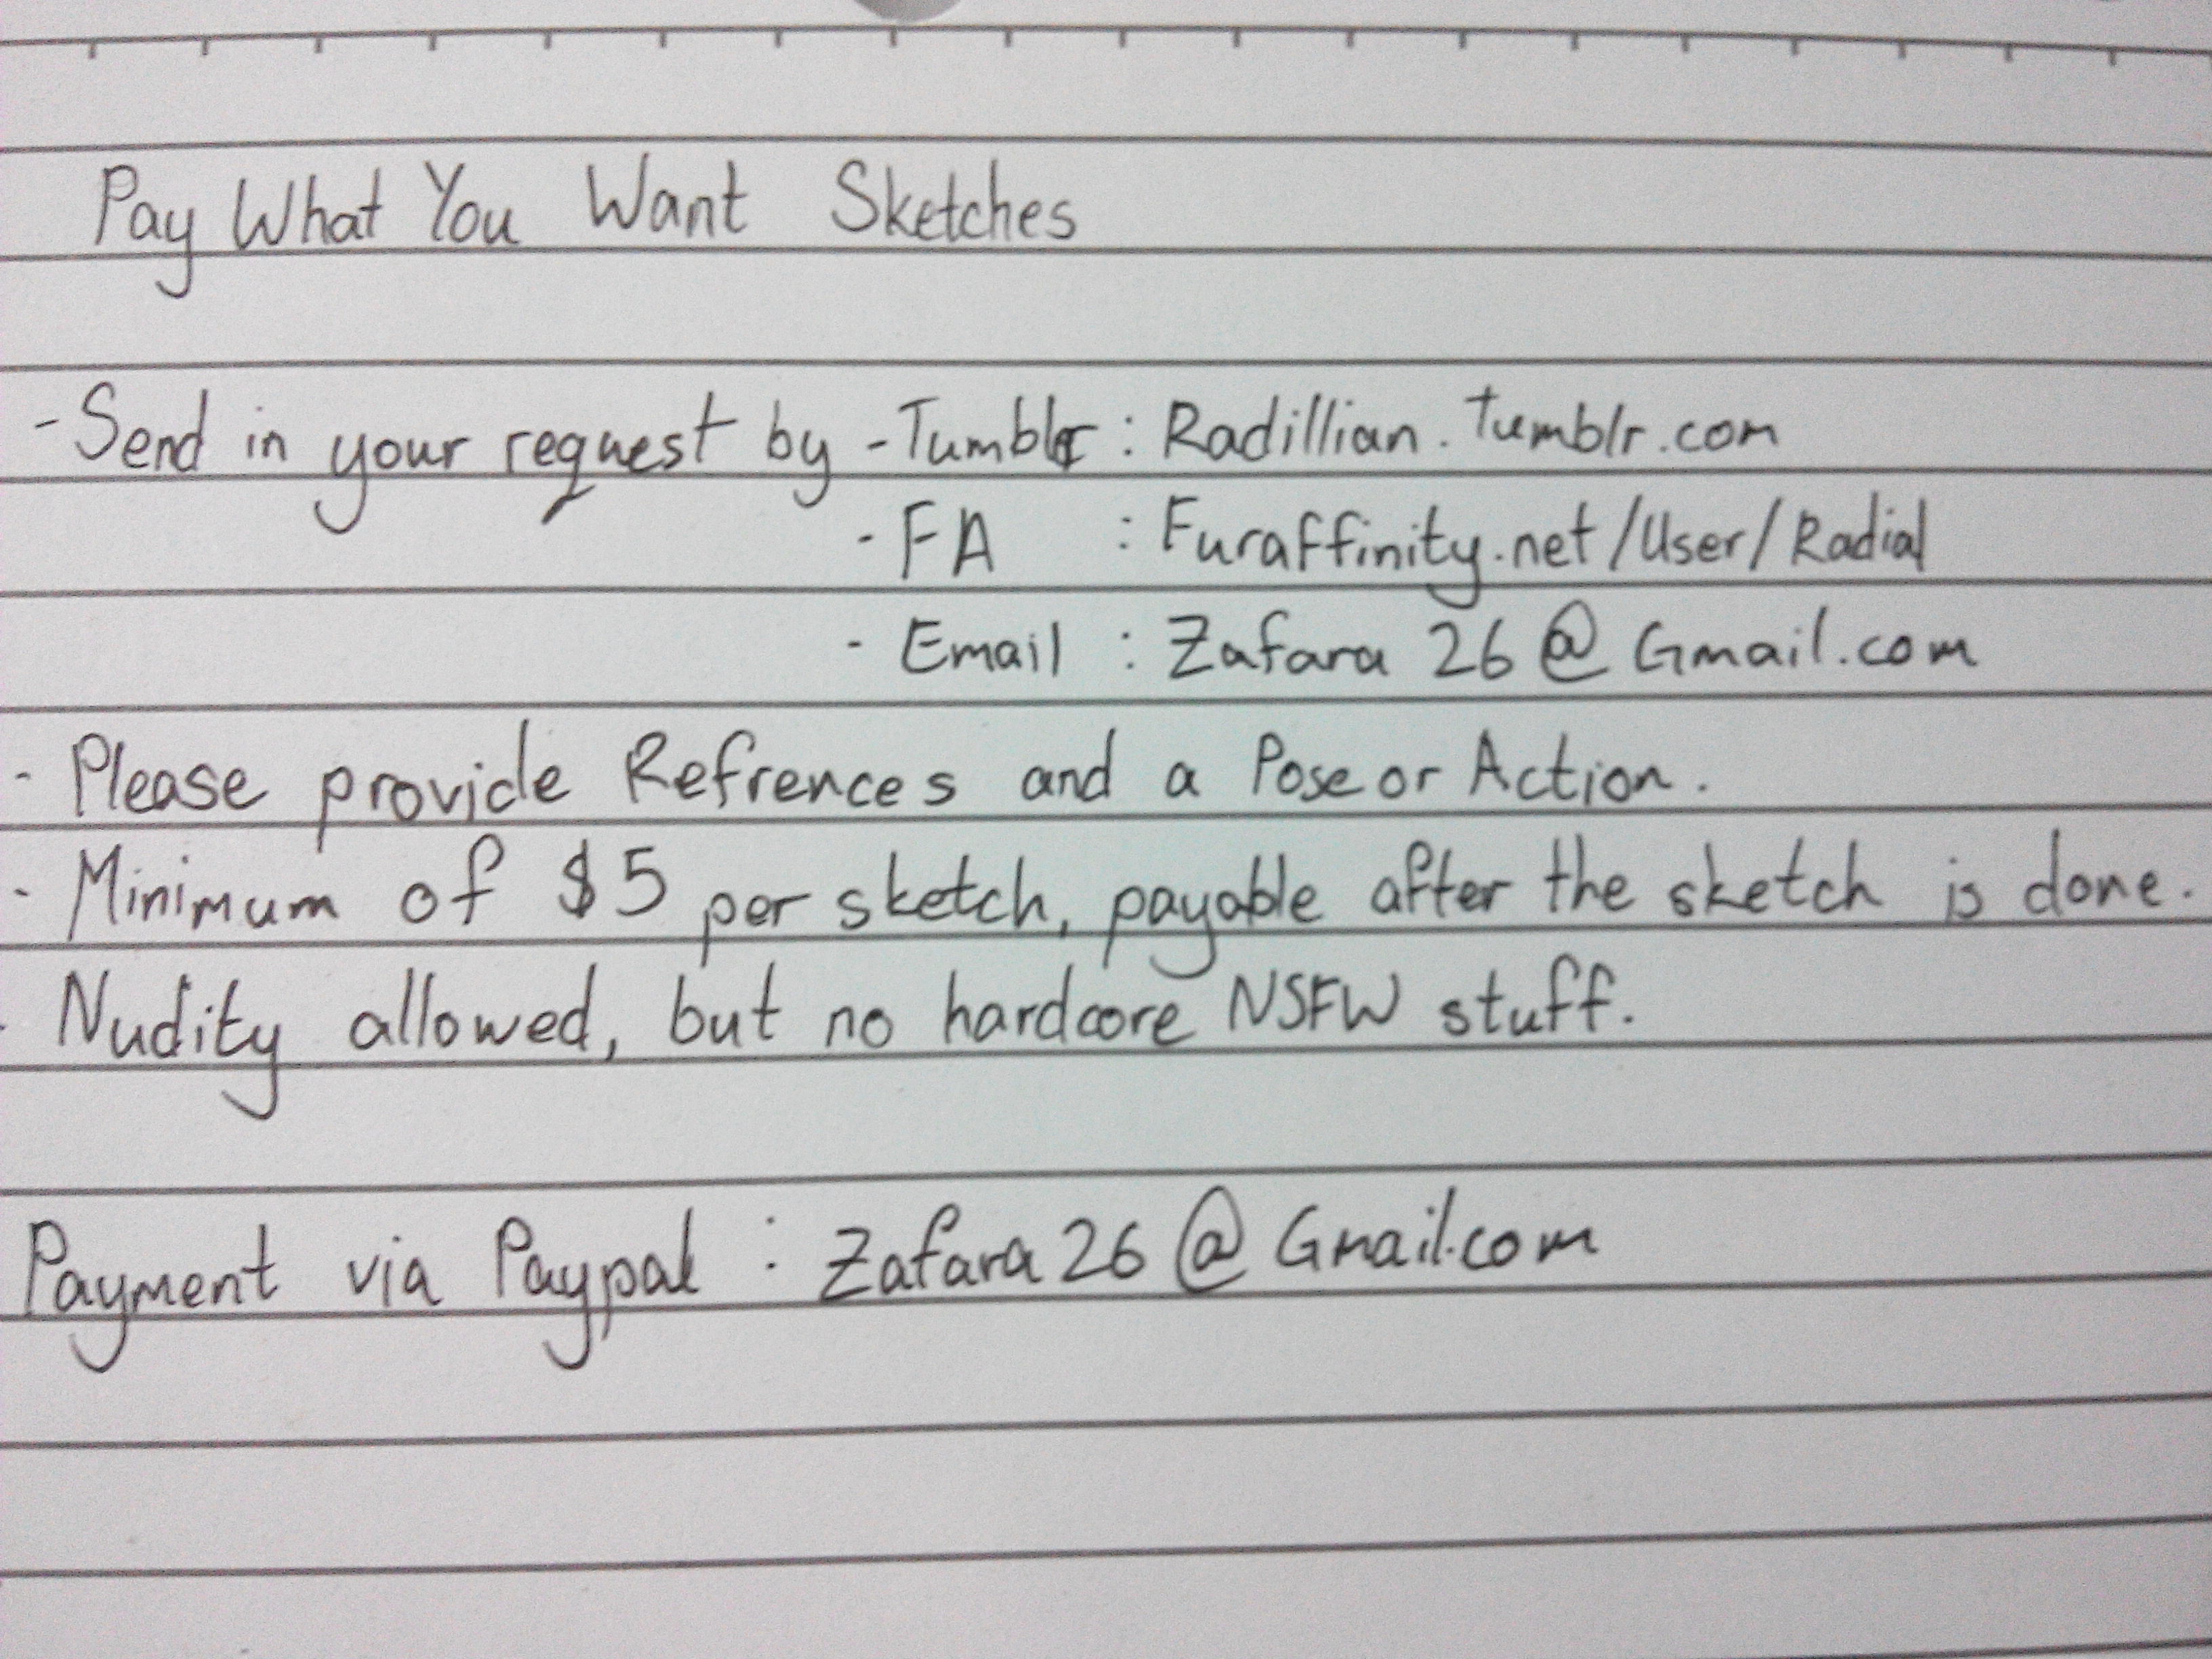 Pay What You Want Sketches
- Send in your request by - Tumblr : Radillian.tumblr.com
- FA : Furaffinity.net/User/Radial
- Email : Zafara 26 @ Gmail.com
- Please provide Refrences and a Pose or Action.
- Minimum of $5 per sketch, payable after the sketch is done.
- Nudity allowed, but no hardcore NSFW stuff.
Payment via Paypal : Zafara 26 @ Gmail.com